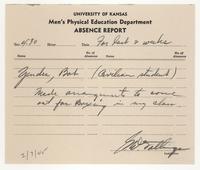 UNIVERSITY OF KANSAS
Men's Physical Education Department
ABSENCE REPORT
Hour Date For last 2 weeks
Name No. of Absences Name No. of Absences
Yender, Bob (Civilian student)
Made arrangements to come
out for Boxing in my class